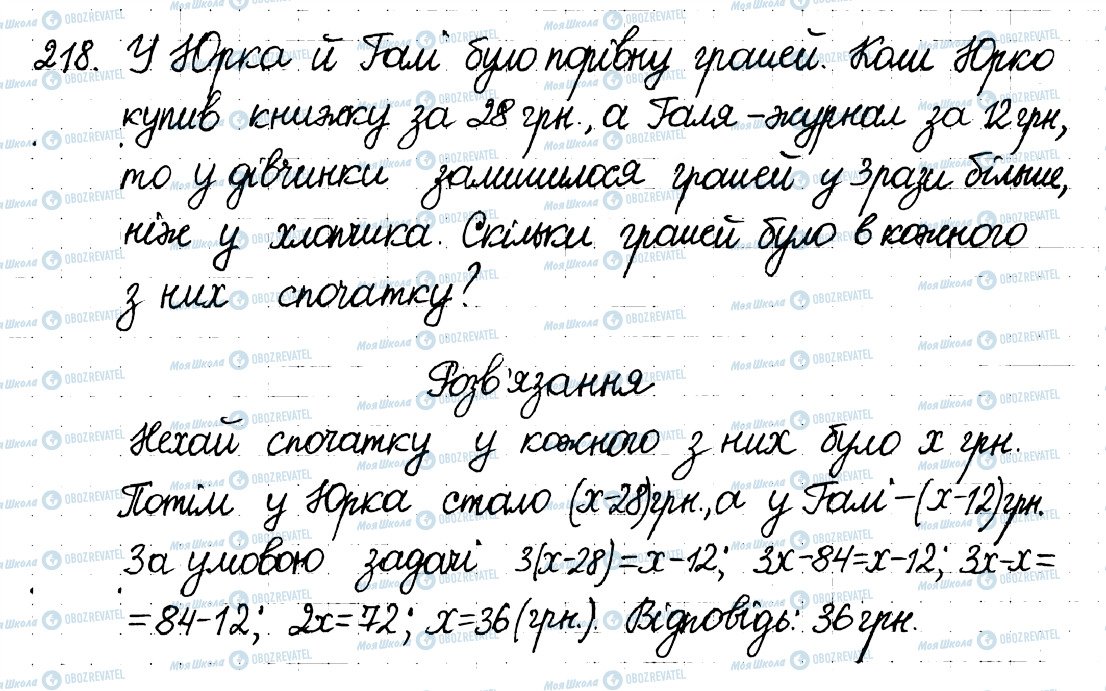 218. У Юрка й Галі було порівну грошей. Коли Юрко
купив книжку за 28 грн., а Галя - журнал за 12 грн,
то у дівчинки залишилося грошей у 3 рази більше,
ніж у хлопчика. Скільки грошей було в кожного
з них спочатку?
Розв'язання
Нехай спочатку у кожного з них було x грн.
Потім у Юрка стало (x-28)грн., а у Галі - (x-12)грн.
За умовою задачі 3(x-28)=x-12; 3x-84=x-12; 3x-x=
=84-12; 2x=72; x=36 (грн.). Відповідь: 36 грн.